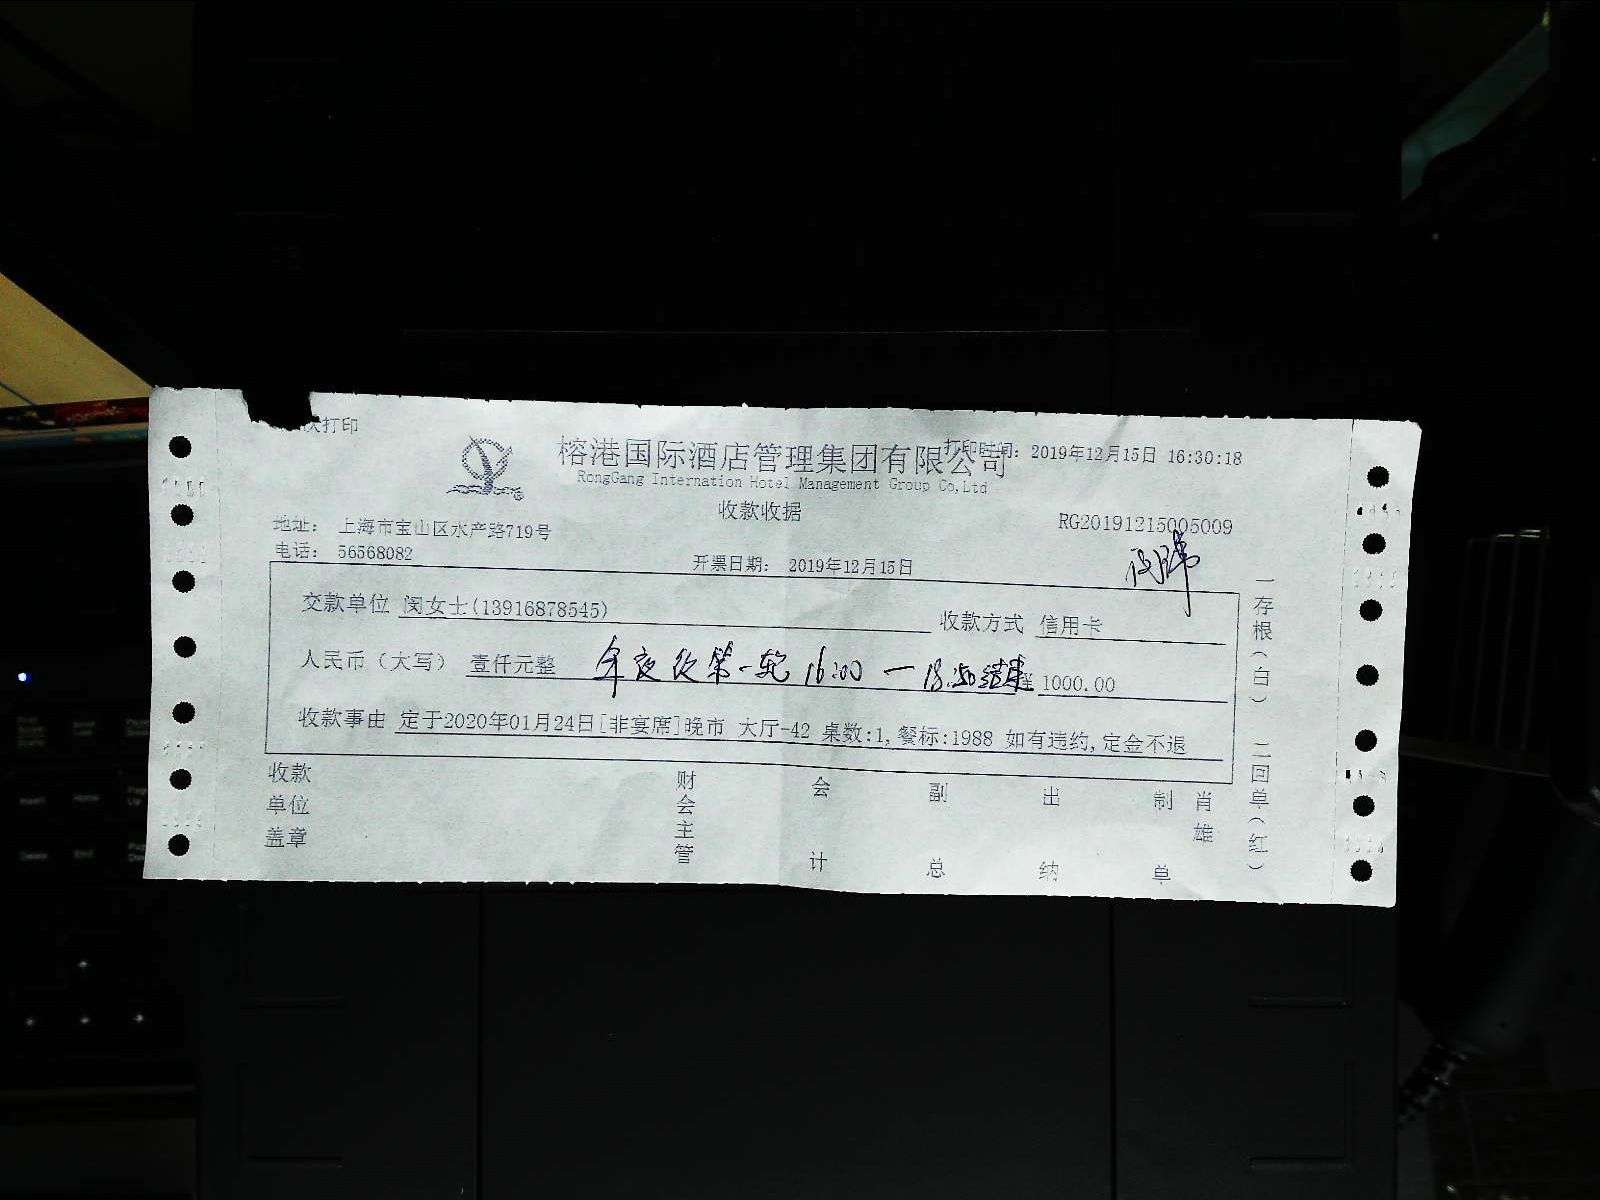 次打印
榕港国际酒店管理集团有限公司
打印时间：2019年12月15日 16:30:18
RongGang Internation Hotel Management Group Co,Ltd
收款收据
RG20191215005009
地址： 上海市宝山区水产路719号
电话： 56568082
开票日期： 2019年12月15日
交款单位 闵女士(13916878545)
收款方式 信用卡
人民币（大写） 壹仟元整 年夜饭第一轮 16:00 — 18:50结束 ¥ 1000.00
收款事由 定于2020年01月24日[非宴席]晚市 大厅-42 桌数:1,餐标:1988 如有违约,定金不退
收款单位盖章
财会主管
会计
副总
出纳
制单
肖雄
一存根（白） 二回单（红）